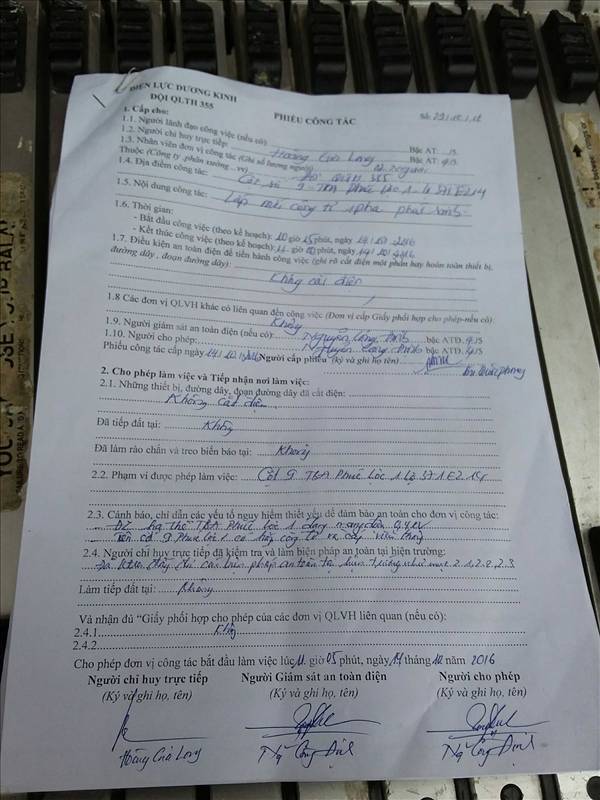 ĐIỆN LỰC DƯƠNG KINH
ĐỘI QLTH 355
PHIẾU CÔNG TÁC
Số:
1. Cấp cho:
1.1. Người lãnh đạo công việc (nếu có) Bậc AT: /5
1.2. Người chỉ huy trực tiếp: Hoàng Gia Long Bậc AT: 4/5
1.3. Nhân viên đơn vị công tác (Ghi số lượng người): 02 người
Thuộc (Công ty, phân xưởng...vv)
1.4. Địa điểm công tác: Cột số 9 TBA Phúc Lộc 1 Lộ 371 E2.14
1.5. Nội dung công tác: Lắp mới công tơ 1 pha
1.6. Thời gian:
- Bắt đầu công việc (theo kế hoạch): 10 giờ 15 phút, ngày 14/10/2016
- Kết thúc công việc (theo kế hoạch): giờ phút, ngày 14/10/2016
1.7. Điều kiện an toàn điện để tiến hành công việc (ghi rõ cắt điện một phần hay hoàn toàn thiết bị,
đường dây, đoạn đường dây):
Không cắt điện
1.8 Các đơn vị QLVH khác có liên quan đến công việc (Đơn vị cấp Giấy phối hợp cho phép-nếu có)
Không
1.9. Người giám sát an toàn điện (nếu có) Nguyễn Công Định bậc ATĐ 4/5
1.10. Người cho phép: Nguyễn Công Định bậc ATĐ 4/5
Phiếu công tác cấp ngày 14/10/2016 Người cấp phiếu (ký và ghi họ tên)
2. Cho phép làm việc và Tiếp nhận nơi làm việc:
2.1. Những thiết bị, đường dây, đoạn đường dây đã cắt điện:
Không cắt điện
Đã tiếp đất tại: Không
Đã làm rào chắn và treo biển báo tại: Không
2.2. Phạm vi được phép làm việc: Cột 9 TBA Phúc Lộc 1 Lộ 371 E2.14
2.3. Cảnh báo, chỉ dẫn các yếu tố nguy hiểm thiết yếu để đảm bảo an toàn cho đơn vị công tác:
ĐZ hạ thế TBA Phúc Lộc 1 đang mang điện 0,4kV
Trên cột 9 Phúc Lộc 1 có công tơ
2.4. Người chỉ huy trực tiếp đã kiểm tra và làm biện pháp an toàn tại hiện trường:
các biện pháp an toàn tại hiện trường như mục 2.1, 2.2, 2.3
Làm tiếp đất tại: Không
Và nhận đủ “Giấy phối hợp cho phép của các đơn vị QLVH liên quan (nếu có):
2.4.1 Không
2.4.2
Cho phép đơn vị công tác bắt đầu làm việc lúc 11 giờ 05 phút, ngày 14 tháng 10 năm 2016
Người chỉ huy trực tiếp Người Giám sát an toàn điện Người cho phép
(Ký và ghi họ, tên) (Ký và ghi họ, tên) (Ký và ghi họ, tên)
Hoàng Gia Long Ng Công Định Ng Công Định